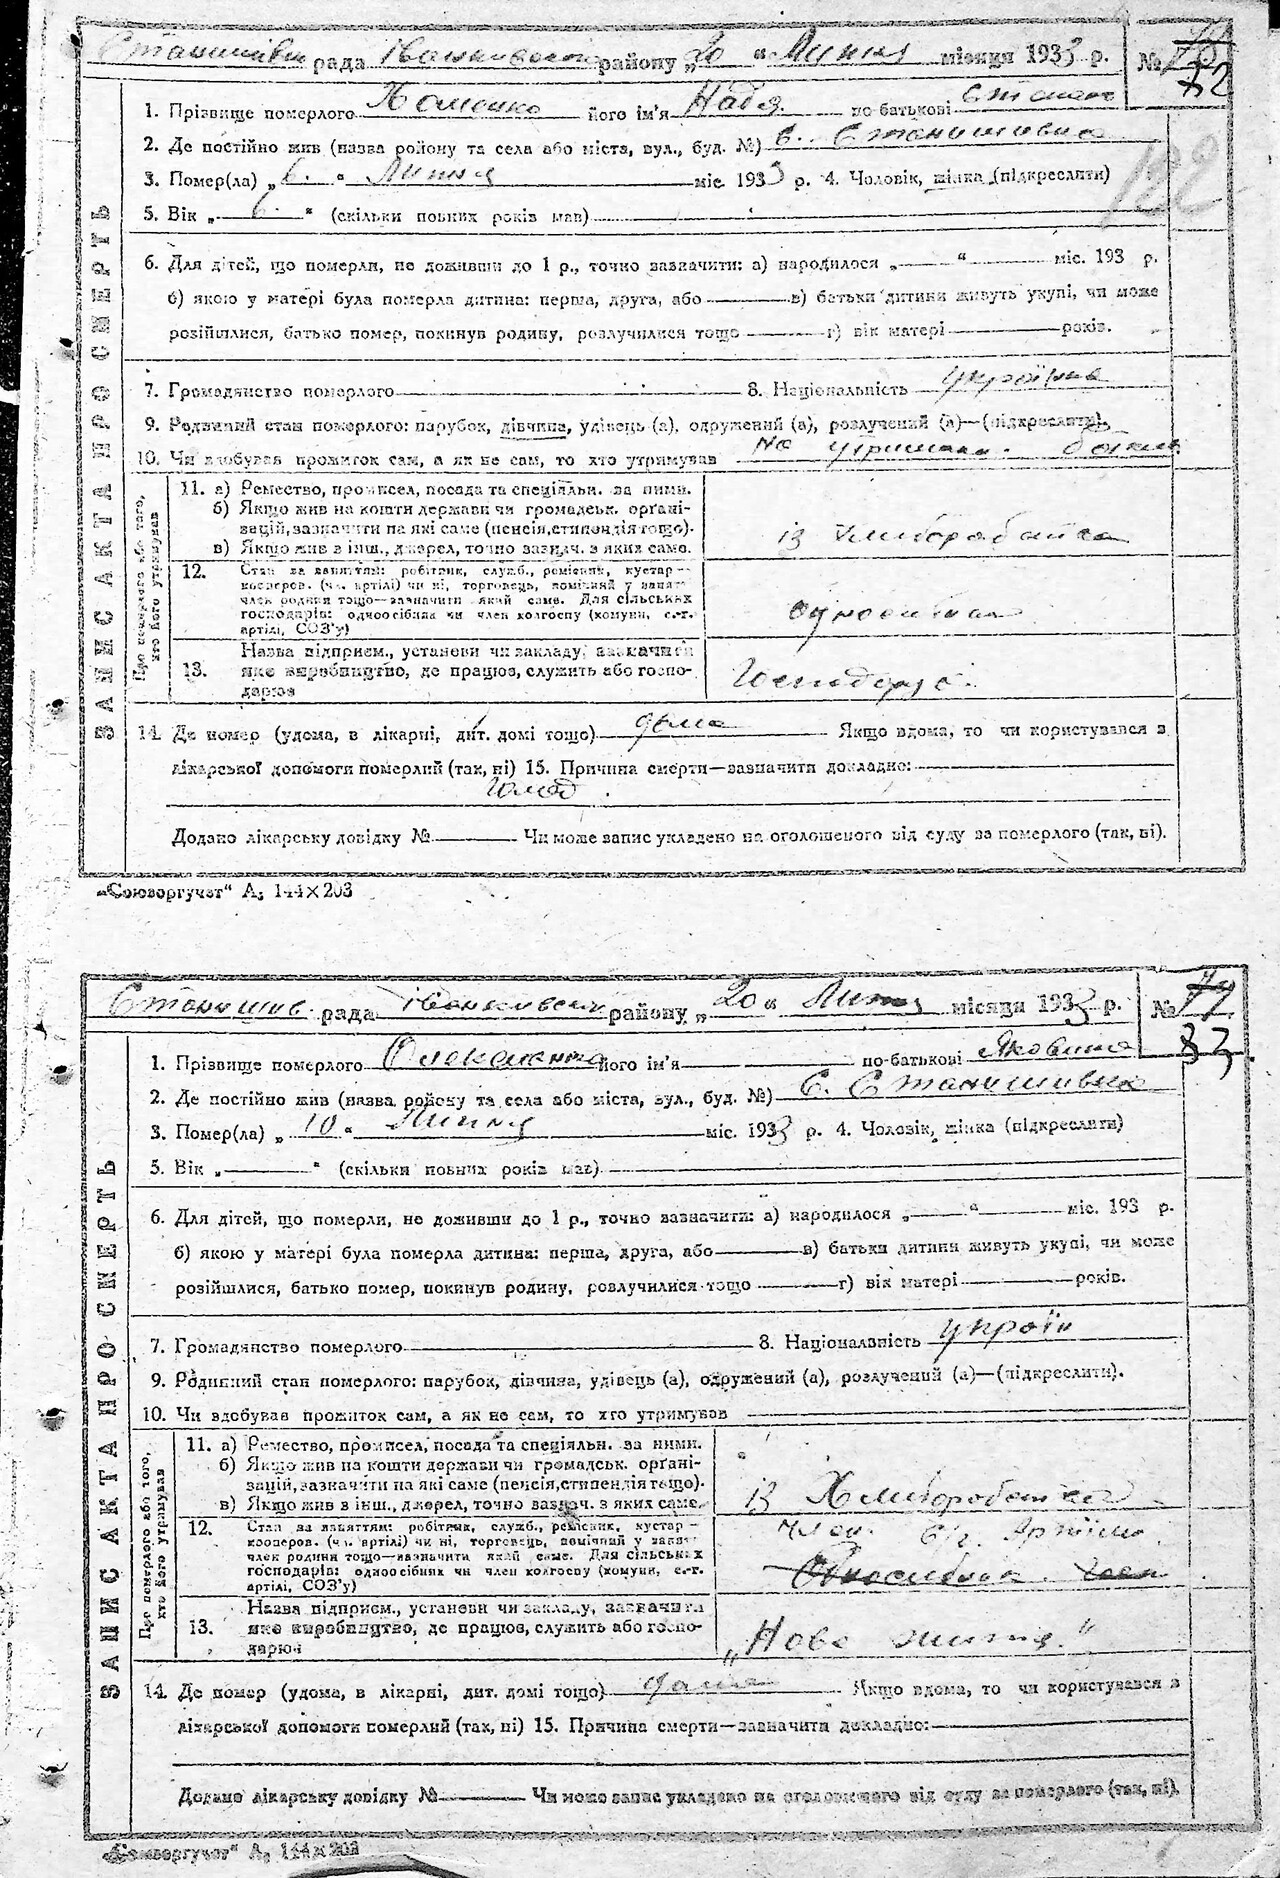 рада району „20 “ Липня місяця 1933 р. №
72
1. Прізвище померлого його ім'я Надя по-батькові Степан
2. Де постійно жив (назва району та села або міста, вул., буд. №) с. Станишивка
3. Помер(ла) „6. “ Липня міс. 1933 р. 4. Чоловік, жінка (підкреслити)
122
5. Вік „ “ (скільки повних років мав)
6. Для дітей, що померли, не доживши до 1 р., точно зазначити: а) народилося „ “ міс. 193 р.
б) якою у матері була померла дитина: перша, друга, або в) батьки дитини живуть укупі, чи може
розійшлися, батько помер, покинув родину, розлучилися тощо г) вік матері років.
7. Громадянство померлого 8. Національність українка
9. Родинний стан померлого: парубок, дівчина, удівець (а), одружений (а), розлучений (а)—(підкреслити).
10. Чи здобував прожиток сам, а як не сам, то хто утримував на утриман. батька
ЗАПИС АКТА ПРО СМЕРТЬ
Про померлого або того, хто його утримував
11. а) Ремество, промисел, посада та спеціяльн. за ними.
б) Якщо жив на кошти держави чи громадськ. орґані-
зацій, зазначити на які саме (пенсія, стипендія тощо).
в) Якщо жив з інш., джерел, точно зазнач. з яких саме.
із хлиборобства
12. Стан за заняттям: робітник, служб., ремісник, кустар—
кооперов. (чл. артілі) чи ні, торговець, помічний у занят.
член родини тощо—зазначити який саме. Для сільських
господарів: одноосібник чи член колгоспу (комуни, с.-г.
артілі, СОЗ'у)
13. Назва підприєм., установи чи закладу, зазначити
яке виробництво, де працює, служить або госпо-
дарює
14. Де помер (удома, в лікарні, дит. домі тощо) дома Якщо вдома, то чи користувався з
лікарської допомоги померлий (так, ні) 15. Причина смерти—зазначити докладно:
Голод.
Додано лікарську довідку № Чи може запис укладено на оголошеного від суду за померлого (так, ні).
„Союзоргучет“ А₅ 144×203
Станишив рада району „20 “ Липня місяця 1933 р. №
83
1. Прізвище померлого його ім'я по-батькові Яковина
2. Де постійно жив (назва району та села або міста, вул., буд. №) С. Станишивка
3. Помер(ла) „ 10 “ Липня міс. 1933 р. 4. Чоловік, жінка (підкреслити)
5. Вік „ “ (скільки повних років мав)
6. Для дітей, що померли, не доживши до 1 р., точно зазначити: а) народилося „ “ міс. 193 р.
б) якою у матері була померла дитина: перша, друга, або в) батьки дитини живуть укупі, чи може
розійшлися, батько помер, покинув родину, розлучилися тощо г) вік матері років.
7. Громадянство померлого 8. Національність україн
9. Родинний стан померлого: парубок, дівчина, удівець (а), одружений (а), розлучений (а)—(підкреслити).
10. Чи здобував прожиток сам, а як не сам, то хто утримував
ЗАПИС АКТА ПРО СМЕРТЬ
Про померлого або того, хто його утримував
11. а) Ремество, промисел, посада та спеціяльн. за ними.
б) Якщо жив на кошти держави чи громадськ. орґані-
зацій, зазначити на які саме (пенсія, стипендія тощо).
в) Якщо жив з інш., джерел, точно зазнач. з яких саме.
із Хлиборобства
12. Стан за заняттям: робітник, служб., ремісник, кустар—
кооперов. (чл. артілі) чи ні, торговець, помічний у занят.
член родини тощо—зазначити який саме. Для сільських
господарів: одноосібник чи член колгоспу (комуни, с.-г.
артілі, СОЗ'у)
Член с/г. Артіли
13. Назва підприєм., установи чи закладу, зазначити
яке виробництво, де працює, служить або госпо-
дарює
„Нове життя“
14. Де помер (удома, в лікарні, дит. домі тощо) дома Якщо вдома, то чи користувався з
лікарської допомоги померлий (так, ні) 15. Причина смерти—зазначити докладно:
Додано лікарську довідку № Чи може запис укладено на оголошеного від суду за померлого (так, ні).
„Союзоргучет“ А₅ 144×203